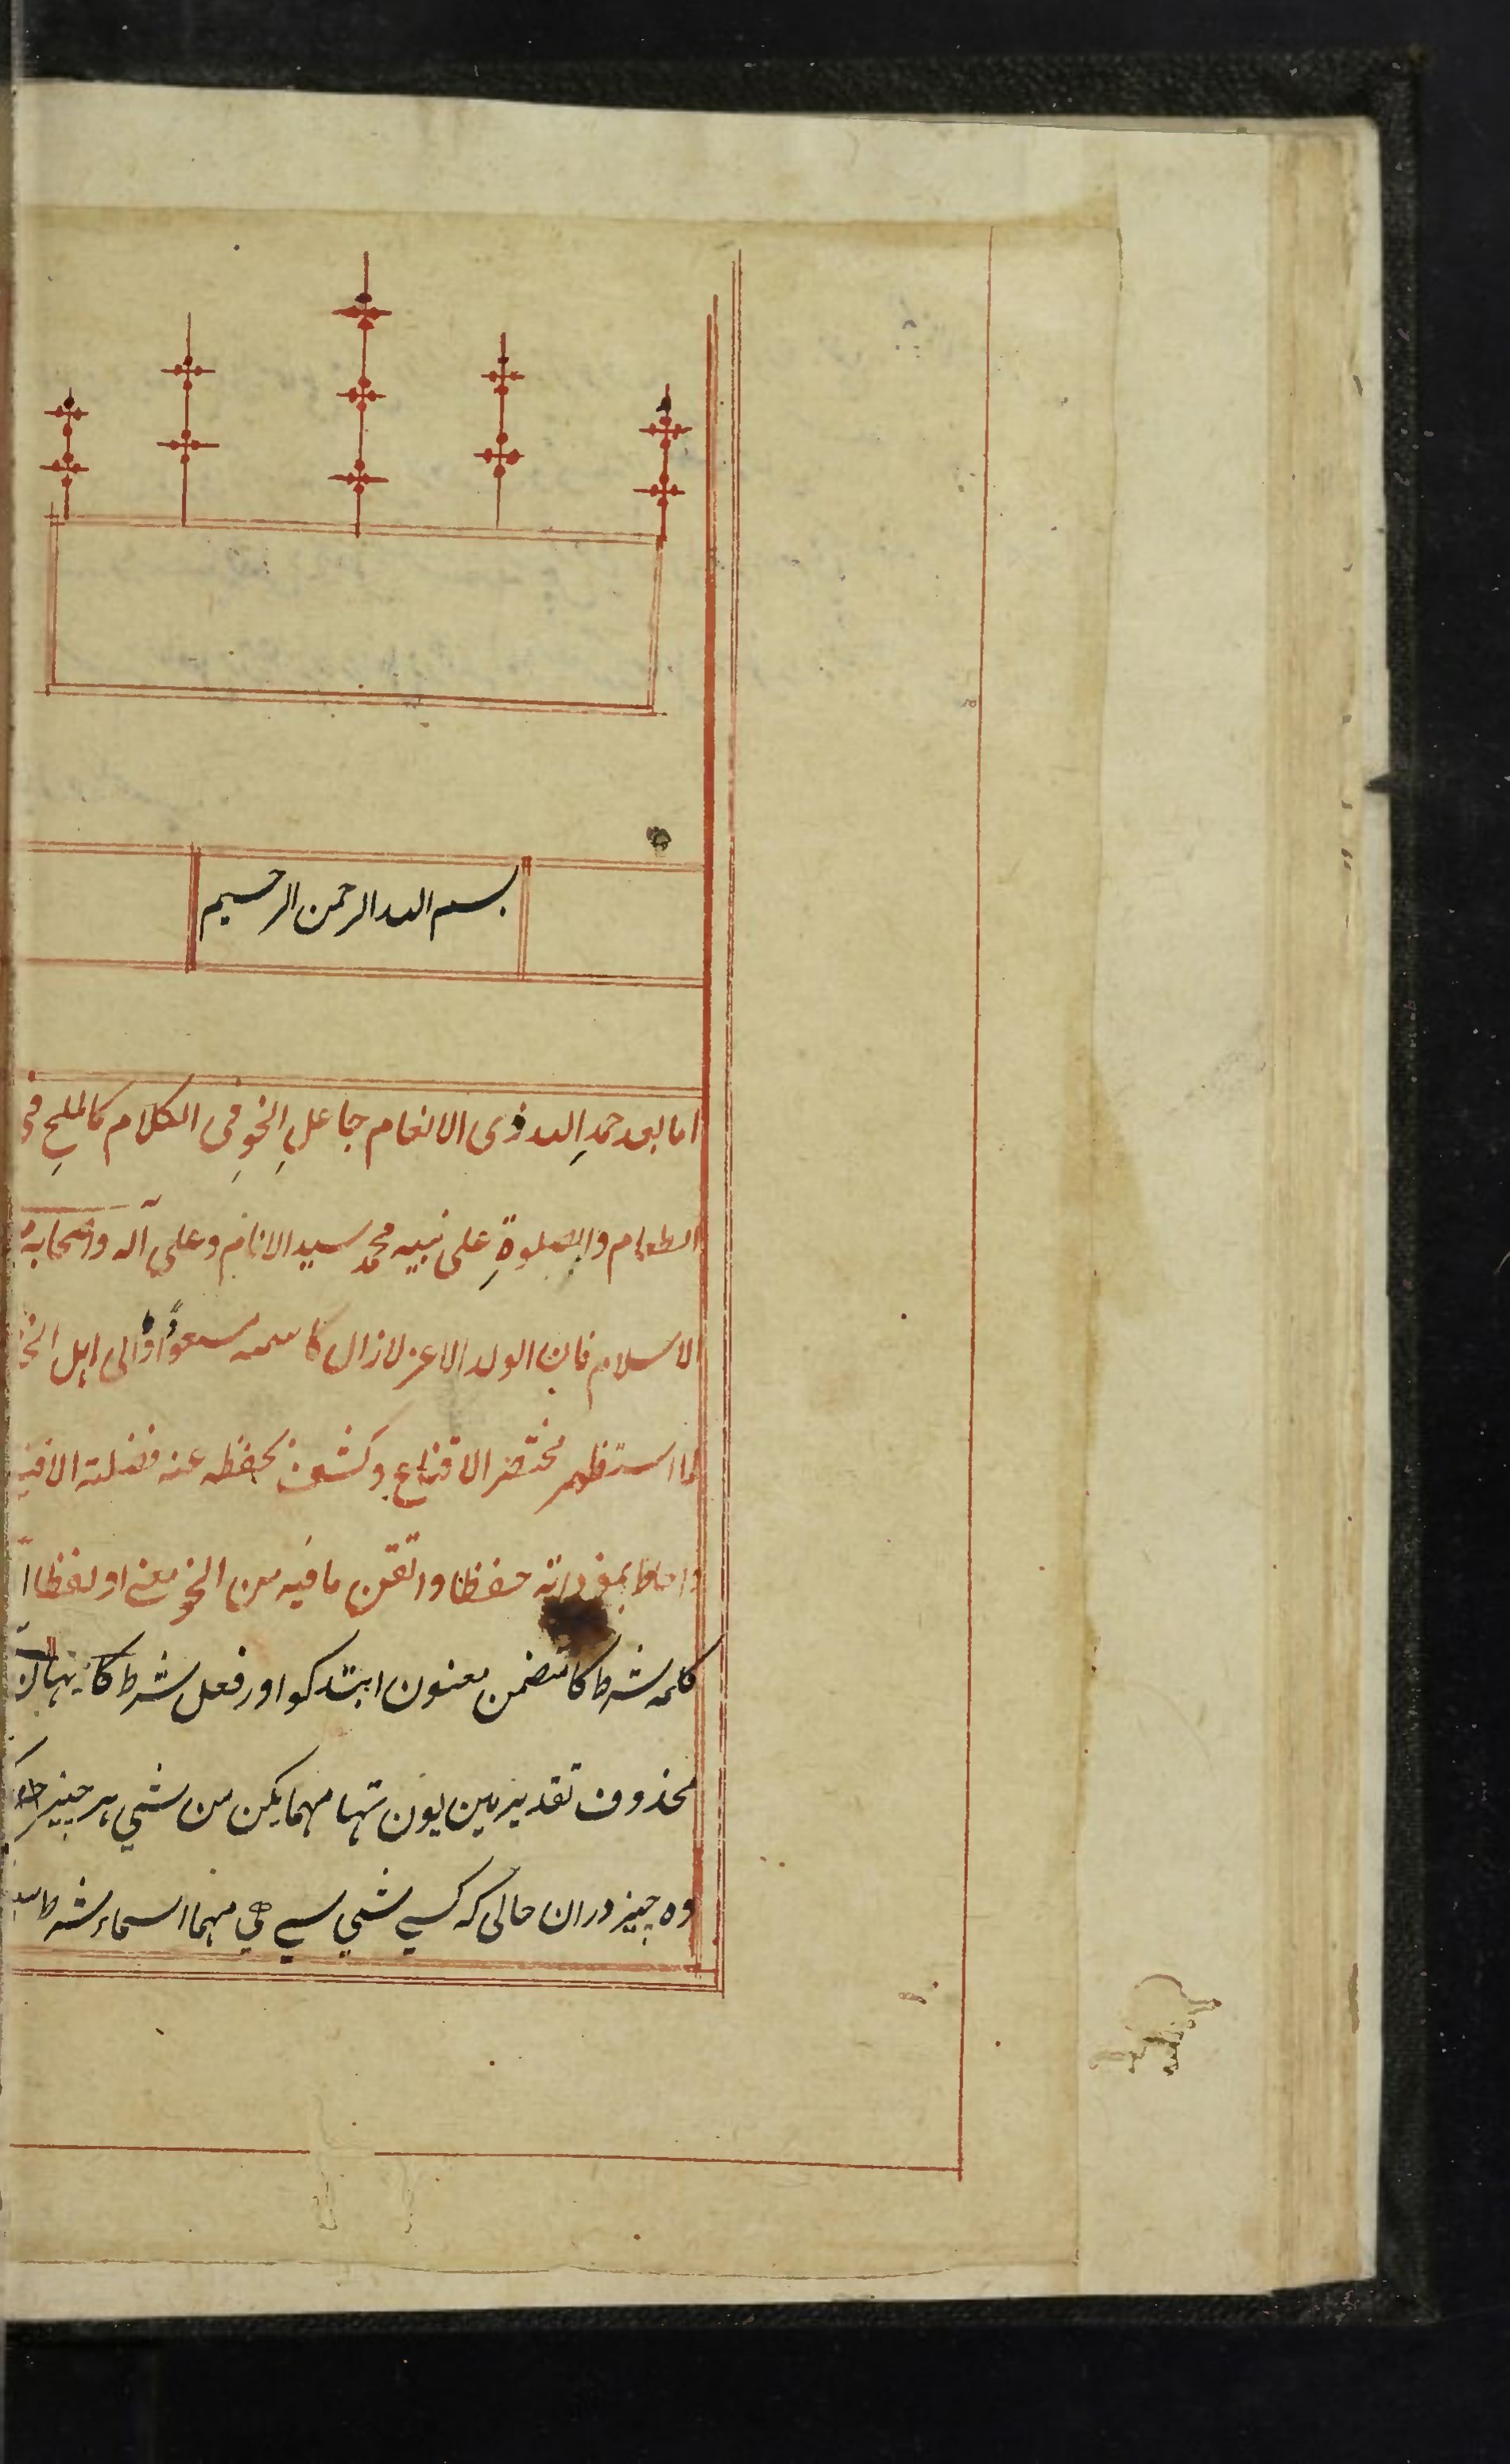 بسم الله الرحمن الرحیم
اما بعد حمدِ الله ذی الانعام جاعلِ النحوِ فی الکلام کالملحِ فی
الطعام والصلوةِ علی نبیه محمد سید الانام وعلی آله واصحابه
الاسلام فان الولد الاعز لازال کاسمه مسعودًا والی اهل الخیر
لما استظهر مختصر الاقناع وکشف بحفظه عنه فضلته القناع
واحاط بمفرداته حفظا واتقن مافیه من النحو معنی ولفظا
کلمه شرط کا متضمن معنون ابتد کو اور فعل شرط کا یہان
محذوف تقدیر مین یون تہا مہما یکن من شي ہر چیز
وہ چیز دران حالی کہ کسے شي سے هي مہما اسماء شرط